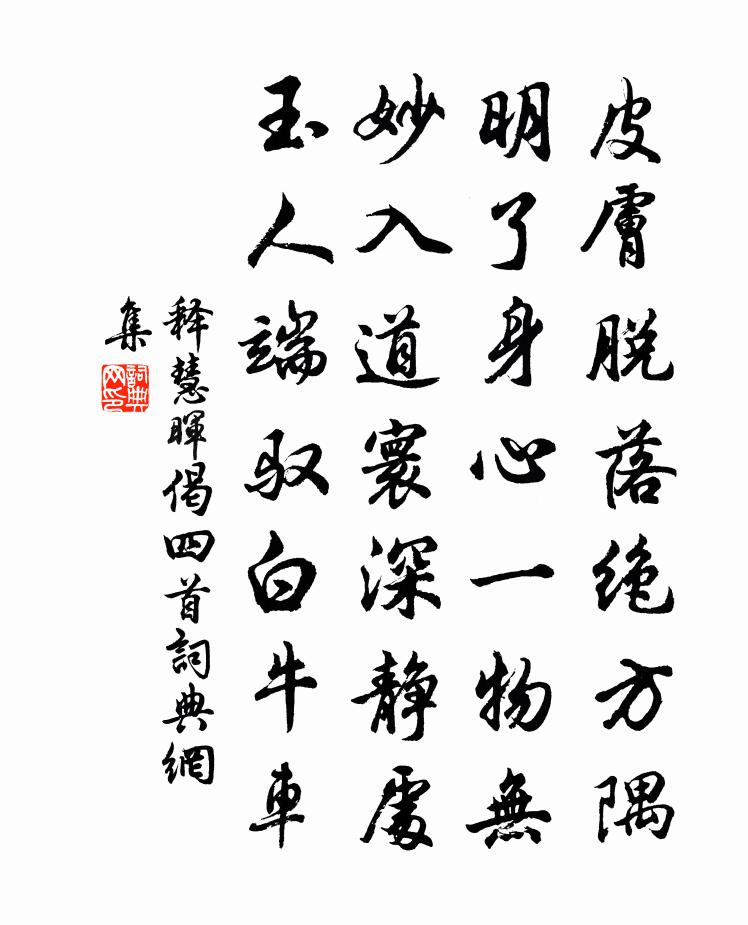 皮膚脫落绝方隅
明了身心一物無
妙入道寰深静處
玉人端驭白牛車
释慧暉偈四首詞典網
集
詞典网印